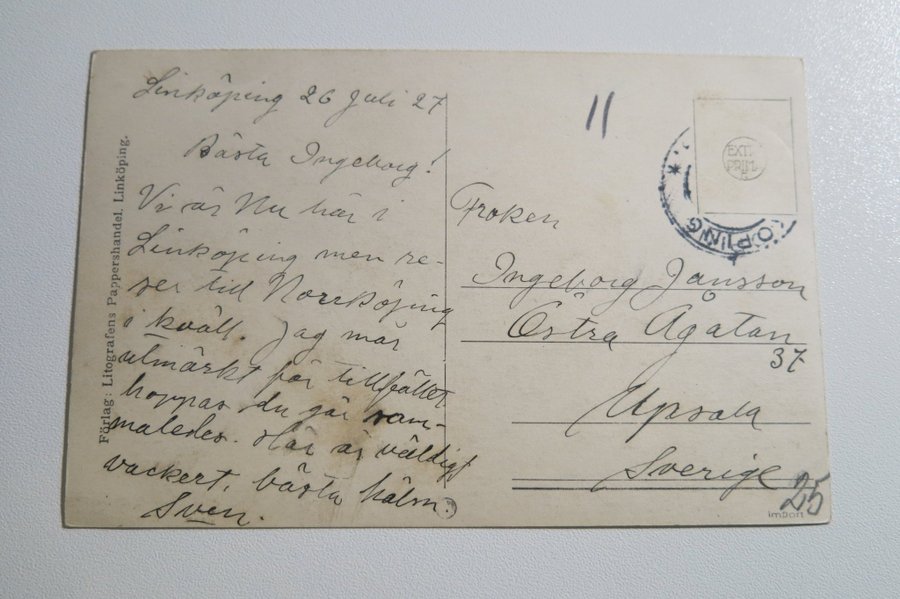 Linköping 26 Juli 27
Bästa Ingeborg!
Vi är Nu här i
Linköping men re-
ser till Norrköping
i kväll. Jag mår
utmärkt för tillfället.
hoppas du gör sam-
maledes. Här är väldigt
vackert. bästa häls.
Sven.
Förlag: Litografens Pappershandel, Linköping.
11
EXTR.
PRIM.
KÖPING
Froken
Ingeborg Jansson
Östra Ågatan
37
Upsala
Sverige
25
Import